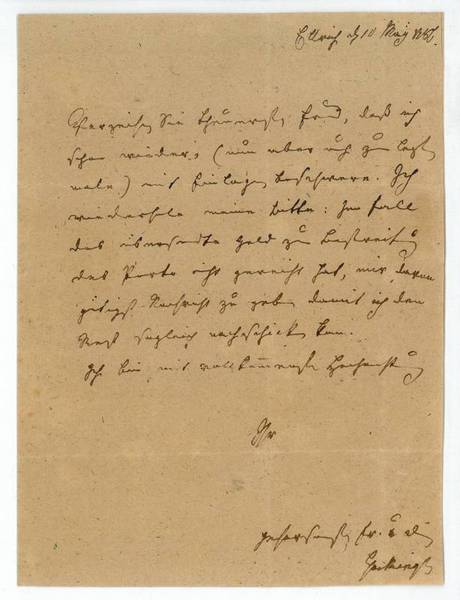 Ellrich d 10. May
Verzeihen Sie theuerster Freund, daß ich
schon wieder, (nun aber auch zum letzten
male) mit Einlagen beschwere. Ich
wiederhole meine Bitte: Im Fall
das übersandte Geld zu Bestreitung
des Porto nicht gereicht hat, mir davon
gütigst Nachricht zu geben damit ich den
Rest sogleich nachschicken kann.
Ich bin mit vollkommenster Hochachtung
Ihr
gehorsamster Fr. u. 
Goekingk